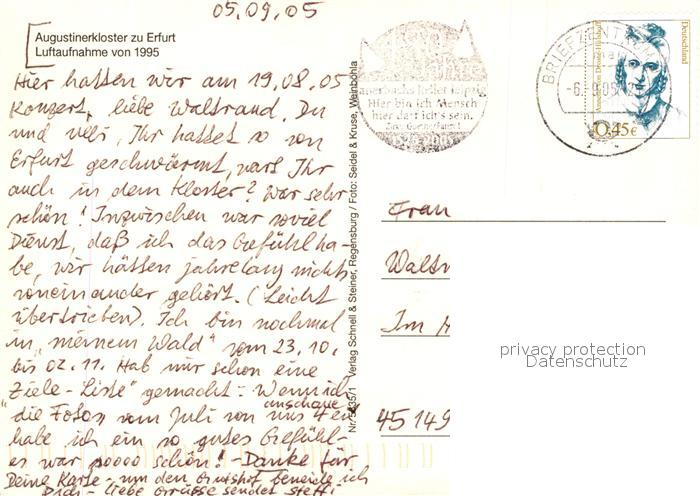 05.09.05
Augustinerkloster zu Erfurt
Luftaufnahme von 1995
Hier hatten wir am 19.08.05
Konzert, liebe Waltraud. Du
und Uli, Ihr hattet so von
Erfurt geschwärmt, wart Ihr
auch in dem Kloster? War sehr
schön! Inzwischen war soviel
Dienst, daß ich das Gefühl ha-
be, wir hätten jahrelang nichts
voneinander gehört. (Leicht
übertrieben). Ich bin nochmal
in "meinem Wald" vom 23.10.
bis 02.11. Hab mir schon eine
"Ziele-Liste" gemacht. Wenn ich
die Fotos vom Juli von uns 4en anschaue,
habe ich ein so gutes Gefühl-
es war soooo schön! - Danke für
Deine Karte - um den beneide ich
Dich - Liebe Grüsse sendet Steffi
Verlag Schnell & Steiner, Regensburg / Foto: Seidel & Kruse, Weinböhla
Auerbachs Keller Leipzig
Hier bin ich Mensch
hier darf ich's sein.
BRIEFZENTRUM
-6.-9.05
Annette von Droste-Hülshoff
Deutschland
0,45€
Frau
Waltr
Im
45149
privacy protection
Datenschutz